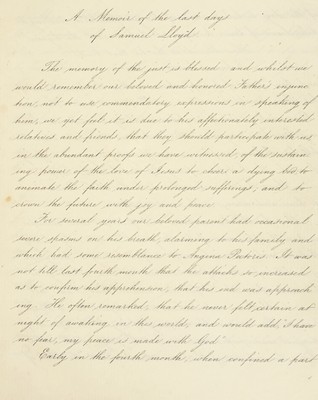 A Memoir of the last days
of Samuel Lloyd
The memory of the just is blessed and whilst we
would remember our beloved and honored Fathers injunc
tion not to use commendatory expressions in speaking of
him, we yet feel it is due to his affectionately interested
relatives and friends, that they should participate with us
in the abundant proofs we have witnessed, of the sustain
ing power of the love of Jesus to cheer a dying bed to
animate the faith under prolonged sufferings, and to
crown the future with joy and peace
For several years our beloved parent had occasional
severe spasms on his breath, alarming to his family and
which had some resemblance to Angina Pectoris. It was
not till last fourth month that the attacks so increased
as to confirm his apprehension, that his end was approach
ing. He often remarked, that he never felt certain at
night of awaking in this world, and would add, "I have
no fear, my peace is made with God"
Early in the fourth month, when confined a part